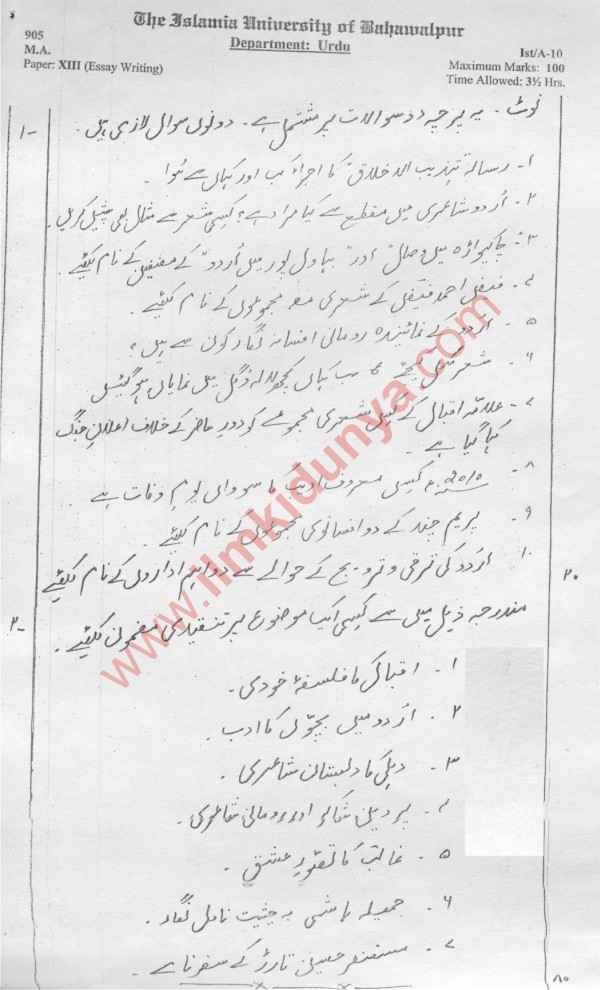 The Islamia University of Bahawalpur
905 Department: Urdu
M.A. Ist/A-10
Paper: XIII (Essay Writing) Maximum Marks: 100
Time Allowed: 3½ Hrs.
نوٹ۔ یہ پرچہ دو سوالات پر مشتمل ہے۔ دونوں سوال لازمی ہیں۔
۱-
۱۔ رسالہ تہذیب الاخلاق کا اجراء کب اور کہاں سے ہُوا۔
۲۔ اُردو شاعری میں مقطع سے کیا مراد ہے؟ کسی شعر سے مثال بھی پیش کریں۔
۳۔ "چاکیواڑہ میں وصال" اور "بہاول پور میں اُردو" کے مصنفین کے نام لکھیے۔
۴۔ فیض احمد فیض کے شعری مجموعوں کے نام لکھیے۔
۵۔ اُردو کے نمائندہ رومانی افسانہ نگار کون سے ہیں؟
۶۔ شعر مکمل کیجیے ؏ سب کہاں کچھ لالہ و گل میں نمایاں ہو گئیں
۷۔ علامہ اقبال کے کس شعری مجموعے کو دورِ حاضر کے خلاف اعلانِ جنگ
کہا گیا ہے۔
۸۔ ۲۰۱۰ء کس معروف ادیب کا سو واں یومِ وفات ہے
۹۔ پریم چند کے دو افسانوی مجموعوں کے نام لکھیے۔
۱۰۔ اُردو کی ترقی و ترویج کے حوالے سے دو اہم اداروں کے نام لکھیے ۲۰
۲- مندرجہ ذیل میں سے کسی ایک موضوع پر تنقیدی مضمون لکھیے۔
۱۔ اقبال کا فلسفۂ خودی۔
۲۔ اُردو میں بچوں کا ادب۔
۳۔ دہلی کا دبستان شاعری۔
۴۔ پروین شاکر اور رومانی شاعری۔
۵۔ غالب کا تصورِ عشق۔
۶۔ جمیلہ ہاشمی بہ حیثیت ناول نگار۔
۷۔ مستنصر حسین تارڑ کے سفرنامے۔ ۸۰
www.ilmkidunya.com